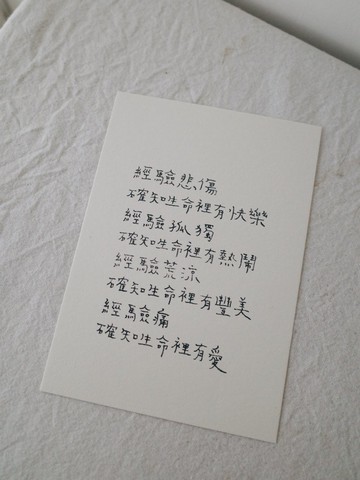 經驗悲傷
確知生命裡有快樂
經驗孤獨
確知生命裡有熱鬧
經驗荒涼
確知生命裡有豐美
經驗痛
確知生命裡有愛